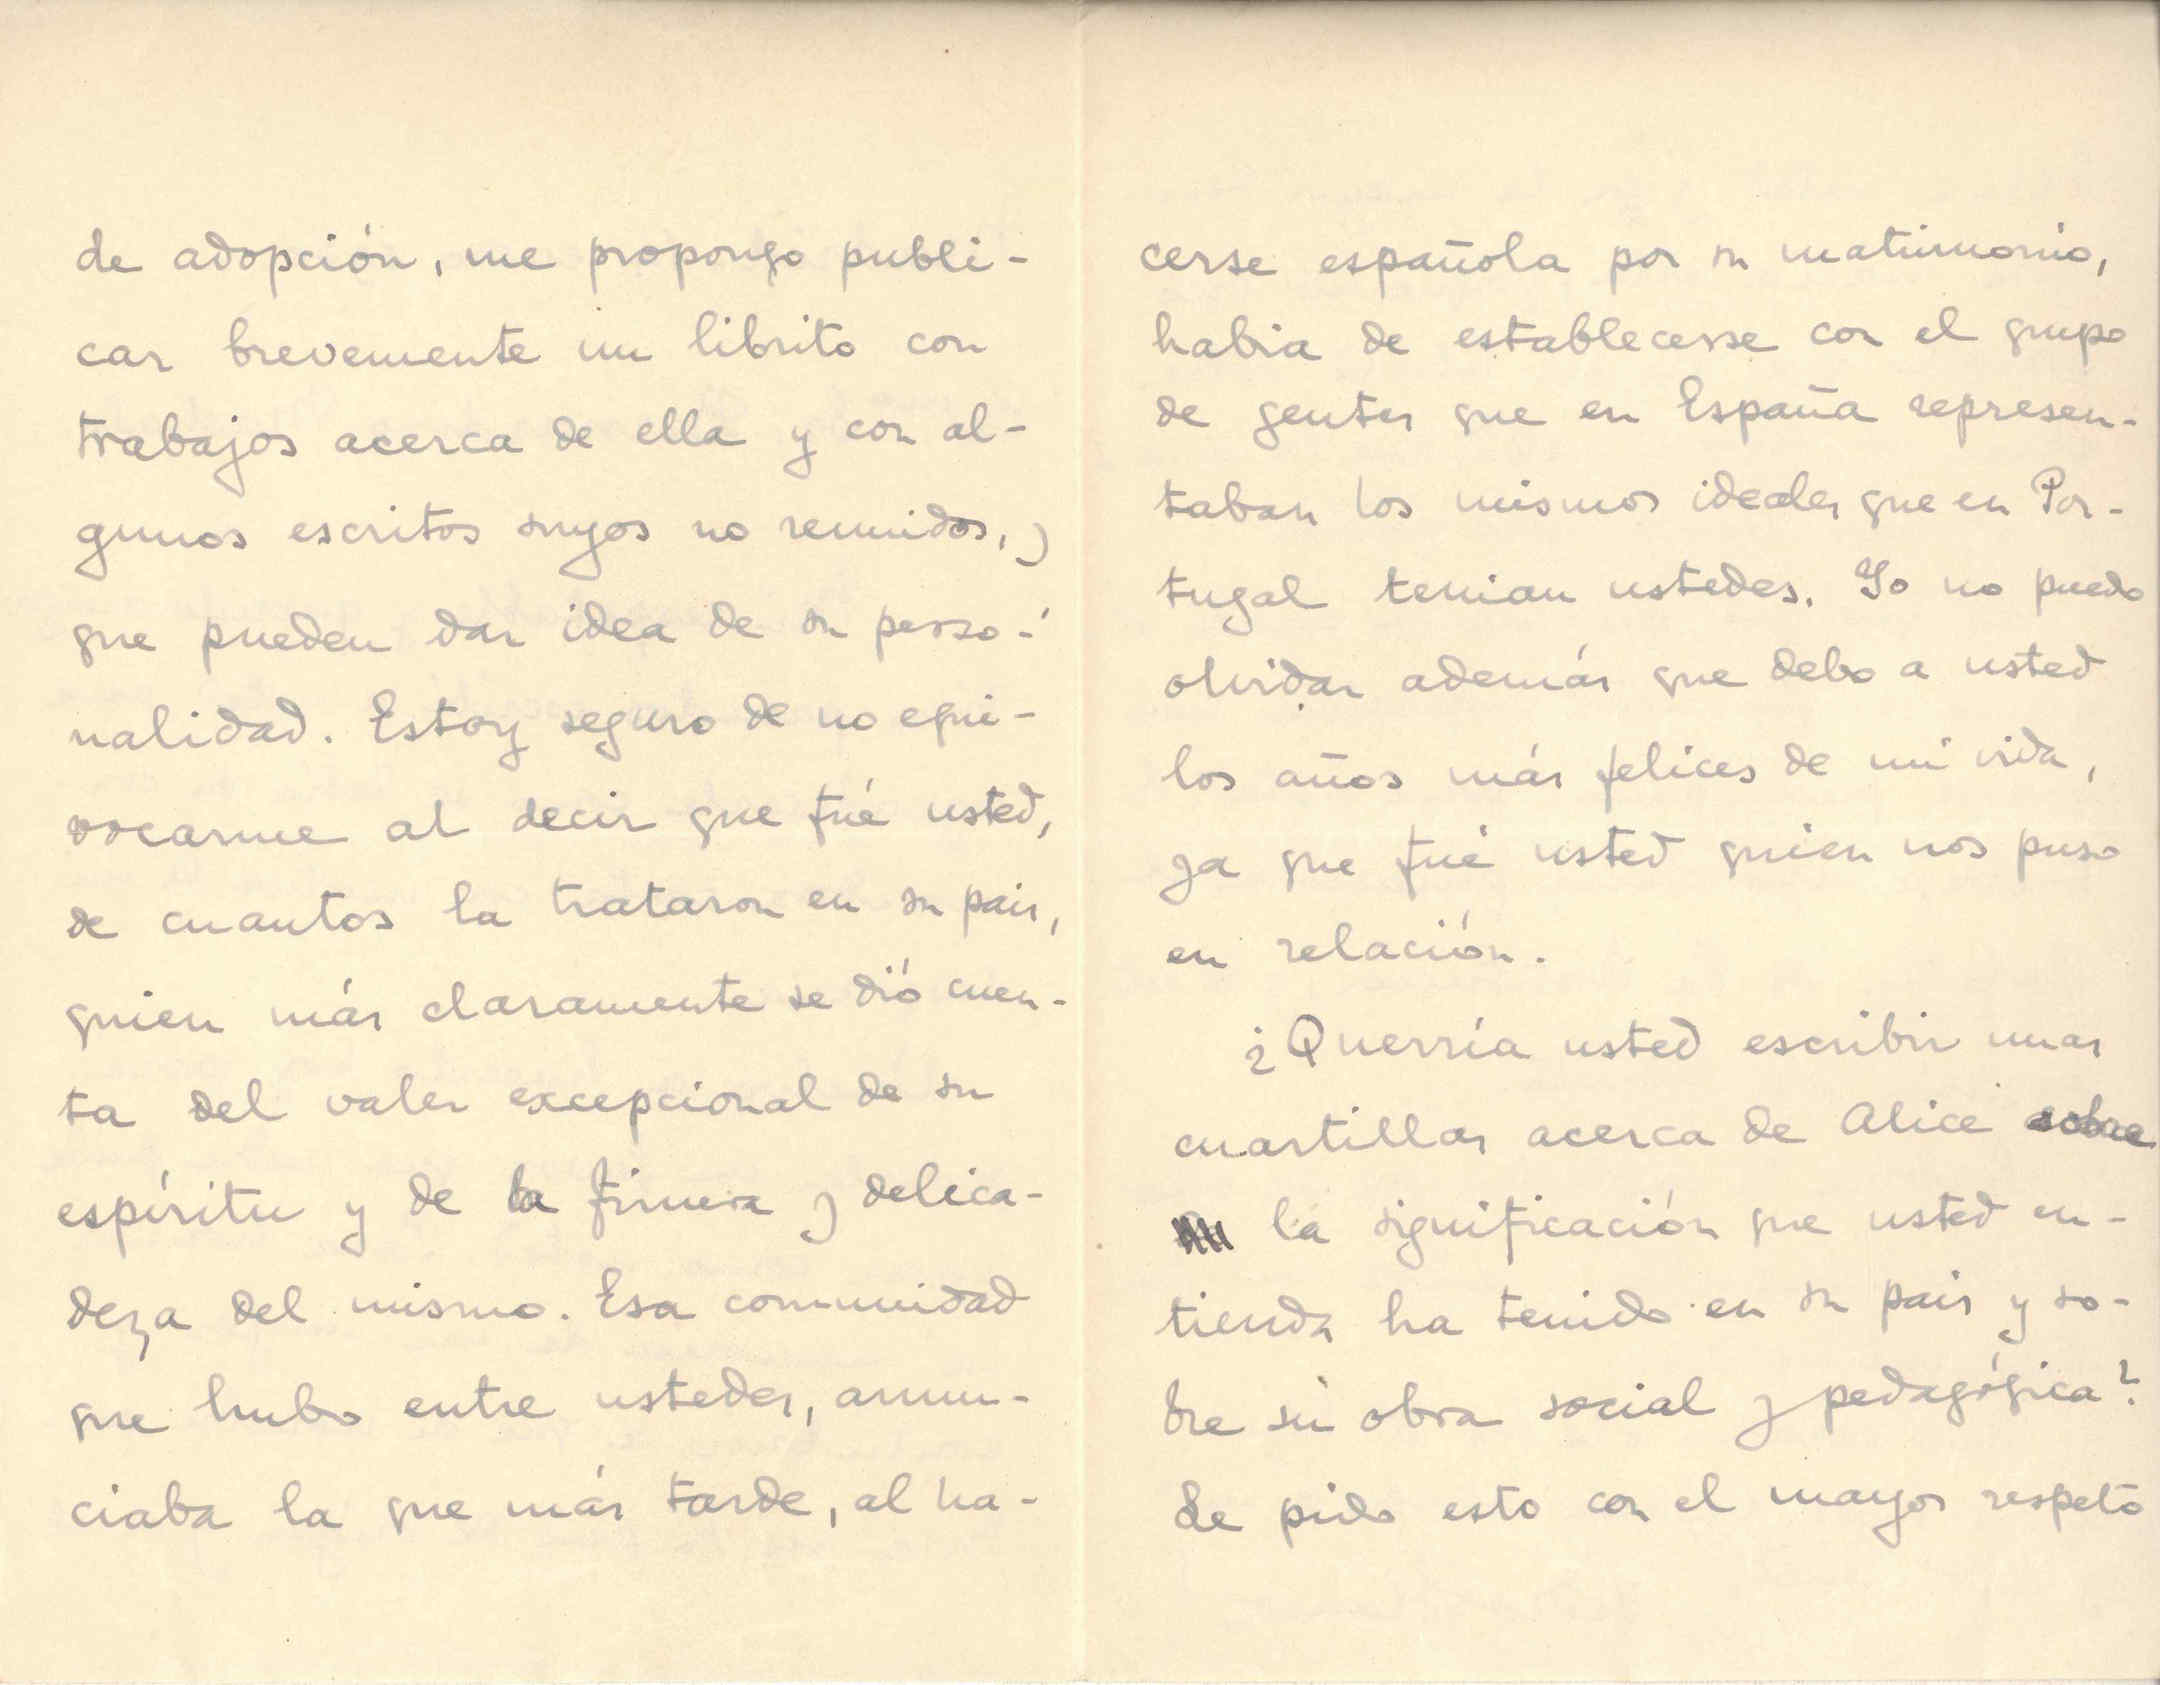 de adopción, me propongo publi-
car brevemente un librito con
trabajos acerca de ella y con al-
gunos escritos suyos no reunidos, y
que pueden dar idea de su perso-
nalidad. Estoy seguro de no equi-
vocarme al decir que fué usted,
de cuantos la trataron en su pais,
quien más claramente se dió cuen-
ta del valer excepcional de su
espíritu y de la fineza y delica-
deza del mismo. Esa comunidad
que hubo entre ustedes, anun-
ciaba la que más tarde, al ha-
cerse española por su matrimonio,
habia de establecerse con el grupo
de gentes que en España represen-
taban los mismos ideales que en Por-
tugal tenian ustedes. Yo no puedo
olvidar además que debo a usted
los años más felices de mi vida,
ya que fué usted quien nos puso
en relación.
¿Querría usted escribir unas
cuartillas acerca de Alice sobre
la significación que usted en-
tienda ha tenido en su pais y so-
bre su obra social y pedagógica?
Le pido esto con el mayor respeto